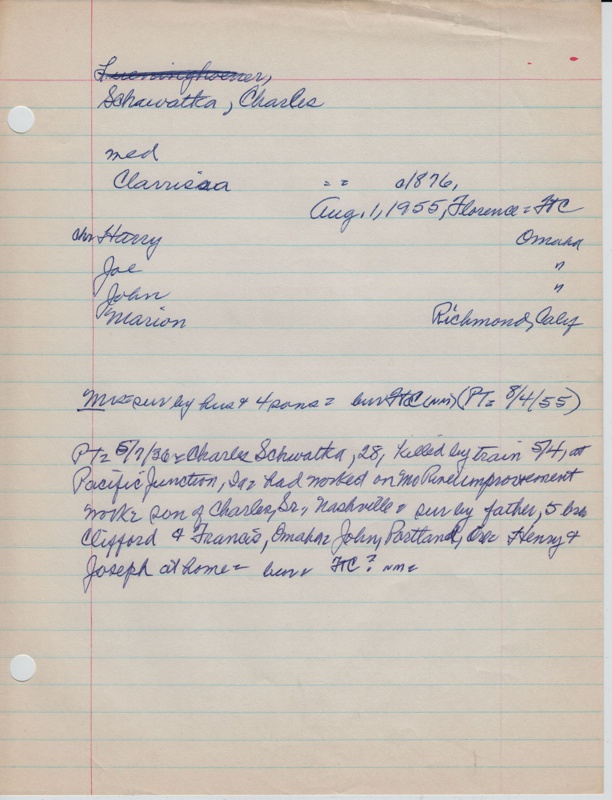 Lueninghoener,
Schawatka, Charles
med
Clarrissa = = c1876,
Aug. 1, 1955, Florence = FtC
chn Harry Omaha
Joe "
John "
Marion Richmond, Calif
Mrs= sur by hus & 4 sons = bur FtC (nm) (PT= 8/4/55)
PT= 5/7/36 = Charles Schwatka, 28, killed by train 5/4, at
Pacific Junction, Ia = had worked on Mo River improvement
work = son of Charles, Sr., Nashville = sur by father, 5 bros
Clifford & Francis, Omaha = John, Portland, Ore = Henry &
Joseph at home = bur = FtC? nm=